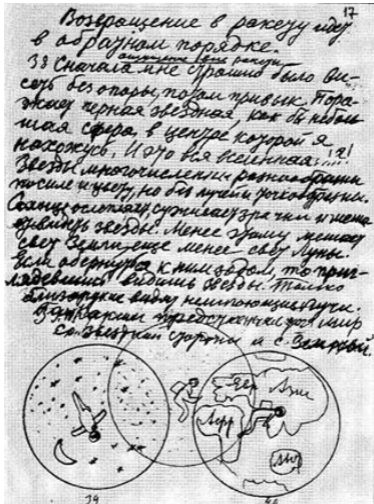 17
Возвращение в ракету идет
в обратном порядке.
33 Сначала мне страшно было ви-
сеть без опоры, потом привык. Пора-
жает черная звездная, как бы неболь-
шая сфера, в центре которой я
нахожусь. И это вся вселенная...!
Звезды многочисленны разнообразны
по силе и цвету, но без лучей и точкообразны.
Солнце ослепляет, суживает зрачки и мешает
видеть звезды. Менее этому мешает
свет Земли, еще менее свет Луны.
Если обернуться к ним задом, то приг-
лядевшись видишь звезды. Только
близорукие видят лучи.
представлен мир
со звездной стороны и с Земной.
Евр
Азия
Афр
39
40